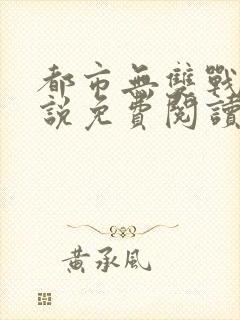 都市無雙戰
說免費閱讀
黃承風